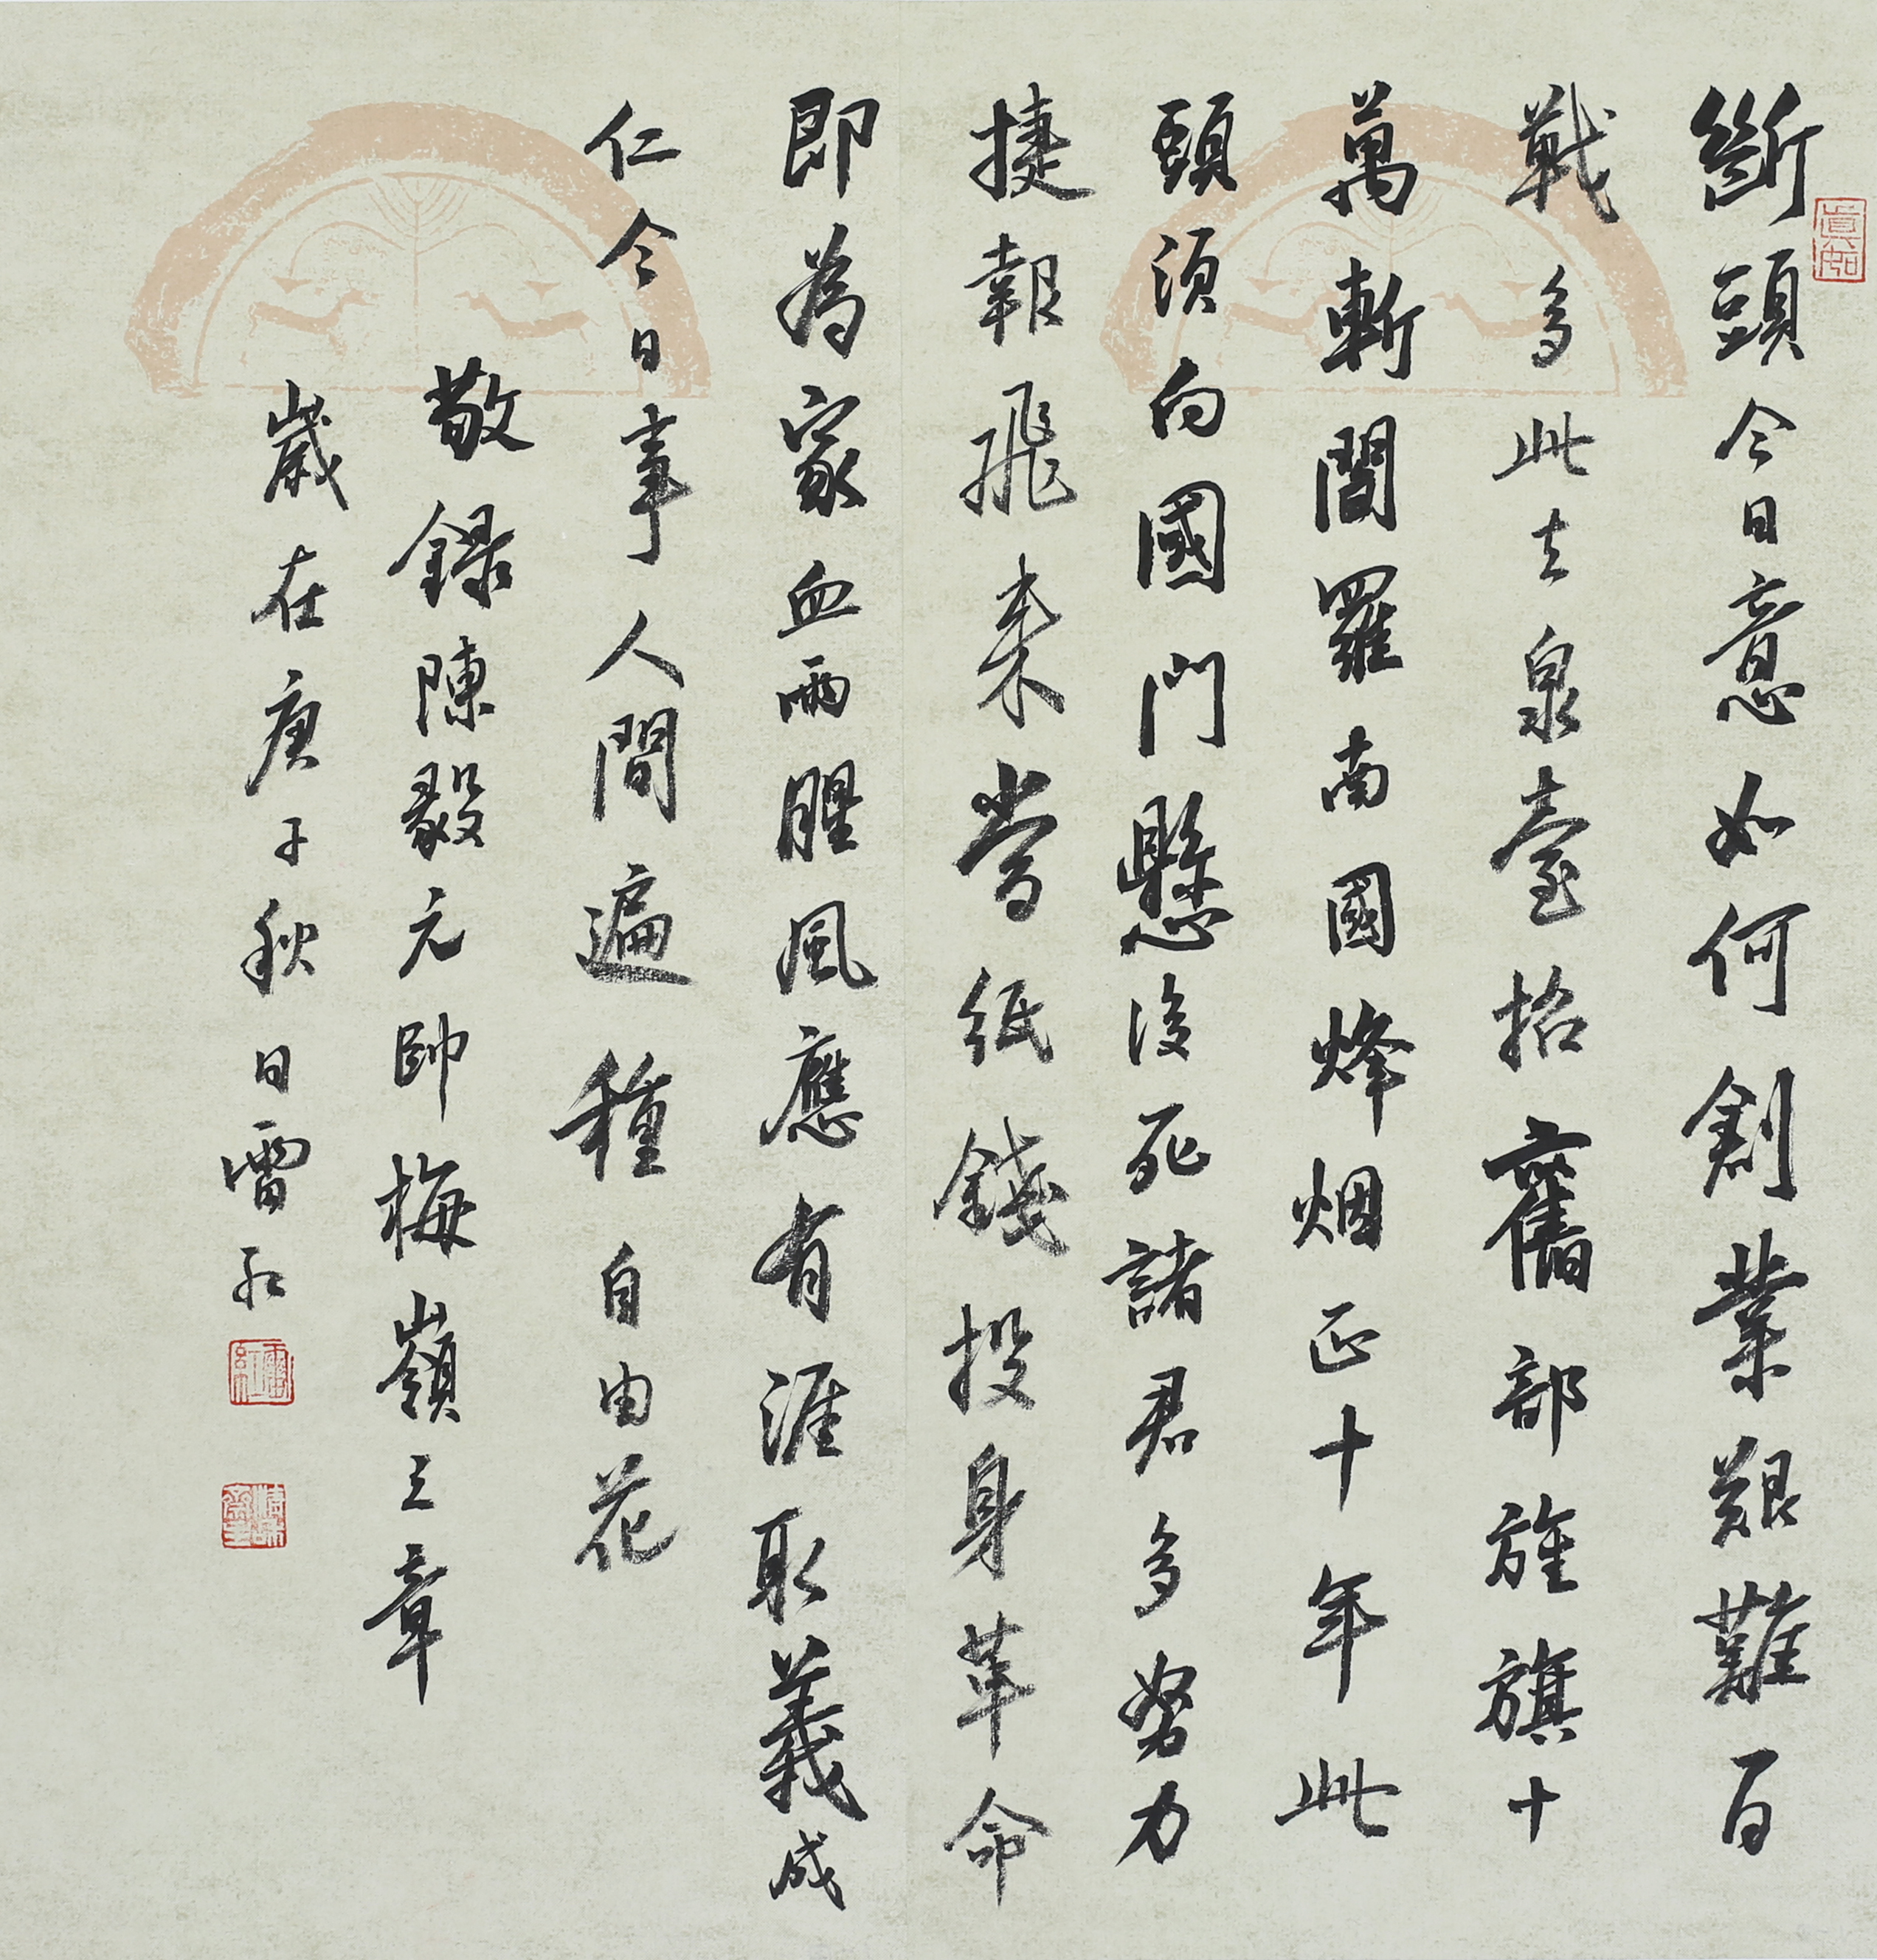 斷頭今日意如何創業艱難百
戰多此去泉臺招舊部旌旗十
萬斬閻羅南國烽烟正十年此
頭須向國門懸後死諸君多努力
捷報飛來當紙錢投身革命
即為家血雨腥風應有涯取義成
仁今日事人間遍種自由花
敬錄陳毅元帥梅嶺三章
歲在庚子秋日雷紅
雷紅